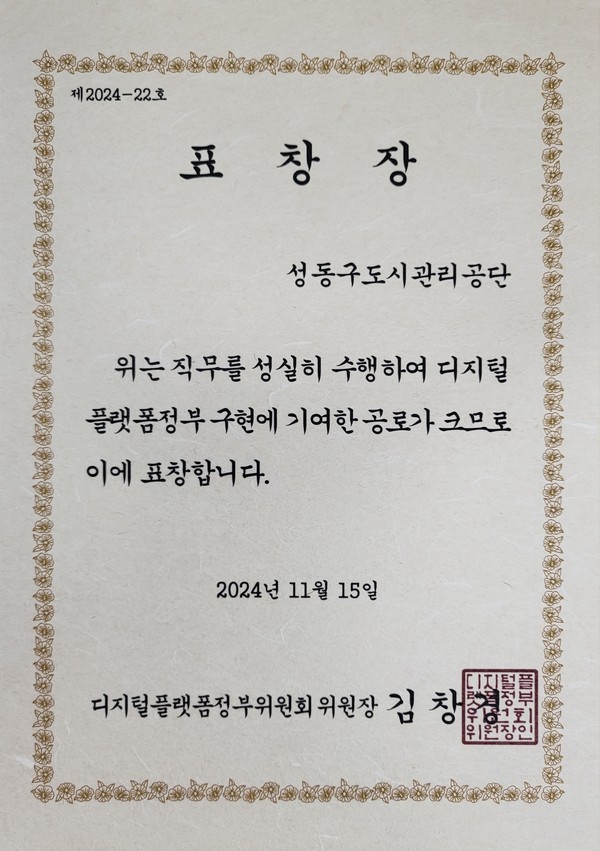 제2024-22호
표 창 장
성동구도시관리공단
위는 직무를 성실히 수행하여 디지털
플랫폼정부 구현에 기여한 공로가 크므로
이에 표창합니다.
2024년 11월 15일
디지털플랫폼정부위원회 위원장 김 창 경
디지털플
랫폼정부
위원회
위원장인